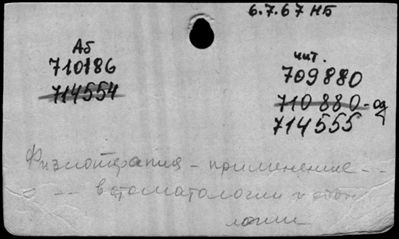 6.7.67 НБ
Аб
710186
714554
чит.
709880
710880-од
714555
Физиотерапия - применение - -
- - в стоматологии и стом
логии